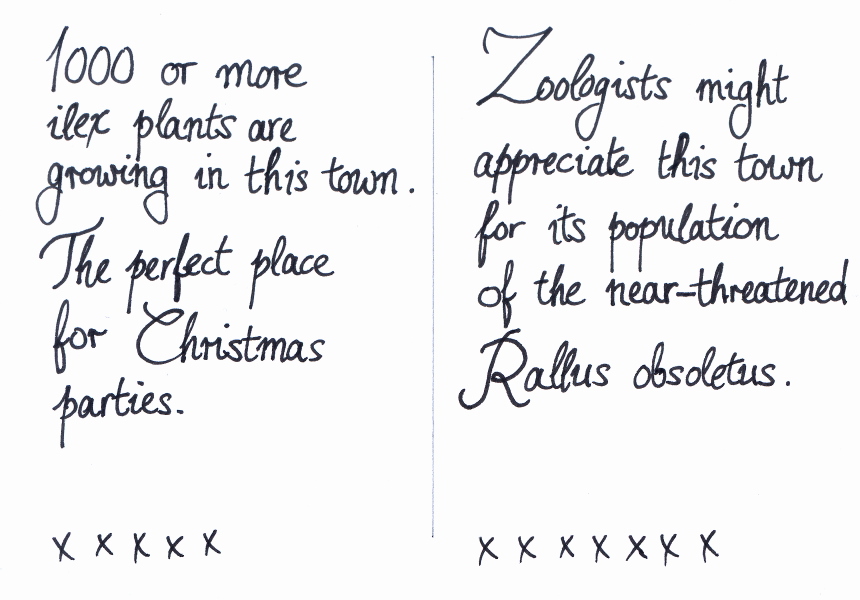 1000 or more
ilex plants are
growing in this town.
The perfect place
for Christmas
parties.
x x x x x
Zoologists might
appreciate this town
for its population
of the near-threatened
Rallus obsoletus.
x x x x x x x